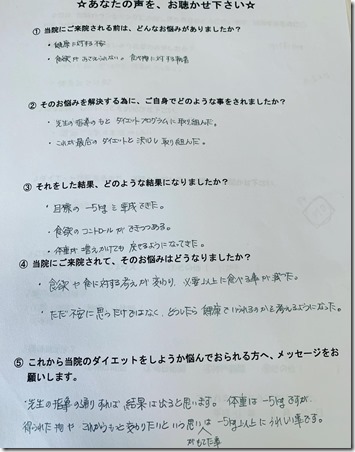 ☆あなたの声を、お聴かせ下さい☆
① 当院にご来院される前は、どんなお悩みがありましたか？
・健康に対する不安
・食欲がおさえられない。食べ物に対する執着
② そのお悩みを解決する為に、ご自身でどのような事をされましたか？
・先生の指導のもと ダイエットプログラムに取り組んだ。
・これが最後のダイエットと決心し取り組んだ。
③ それをした結果、どのような結果になりましたか？
・目標の −5kgを達成できた。
・食欲のコントロールができつつある。
・体重が増えかけても戻せるようになってきた。
④ 当院にご来院されて、そのお悩みはどうなりましたか？
・食欲や食に対する考えが変わり、必要以上に食べる事が減った。
・ただ不安に思うだけではなく、どうしたら健康でいられるのかを考えるようになった。
⑤ これから当院のダイエットをしようか悩んでおられる方へ、メッセージをお
願いします。
・先生の指導の通りすれば結果は出ると思います。体重は−5kgですが
得られた物やこれからもっと変わりたいという思いがもてた事は−5kg以上にうれしい事です。